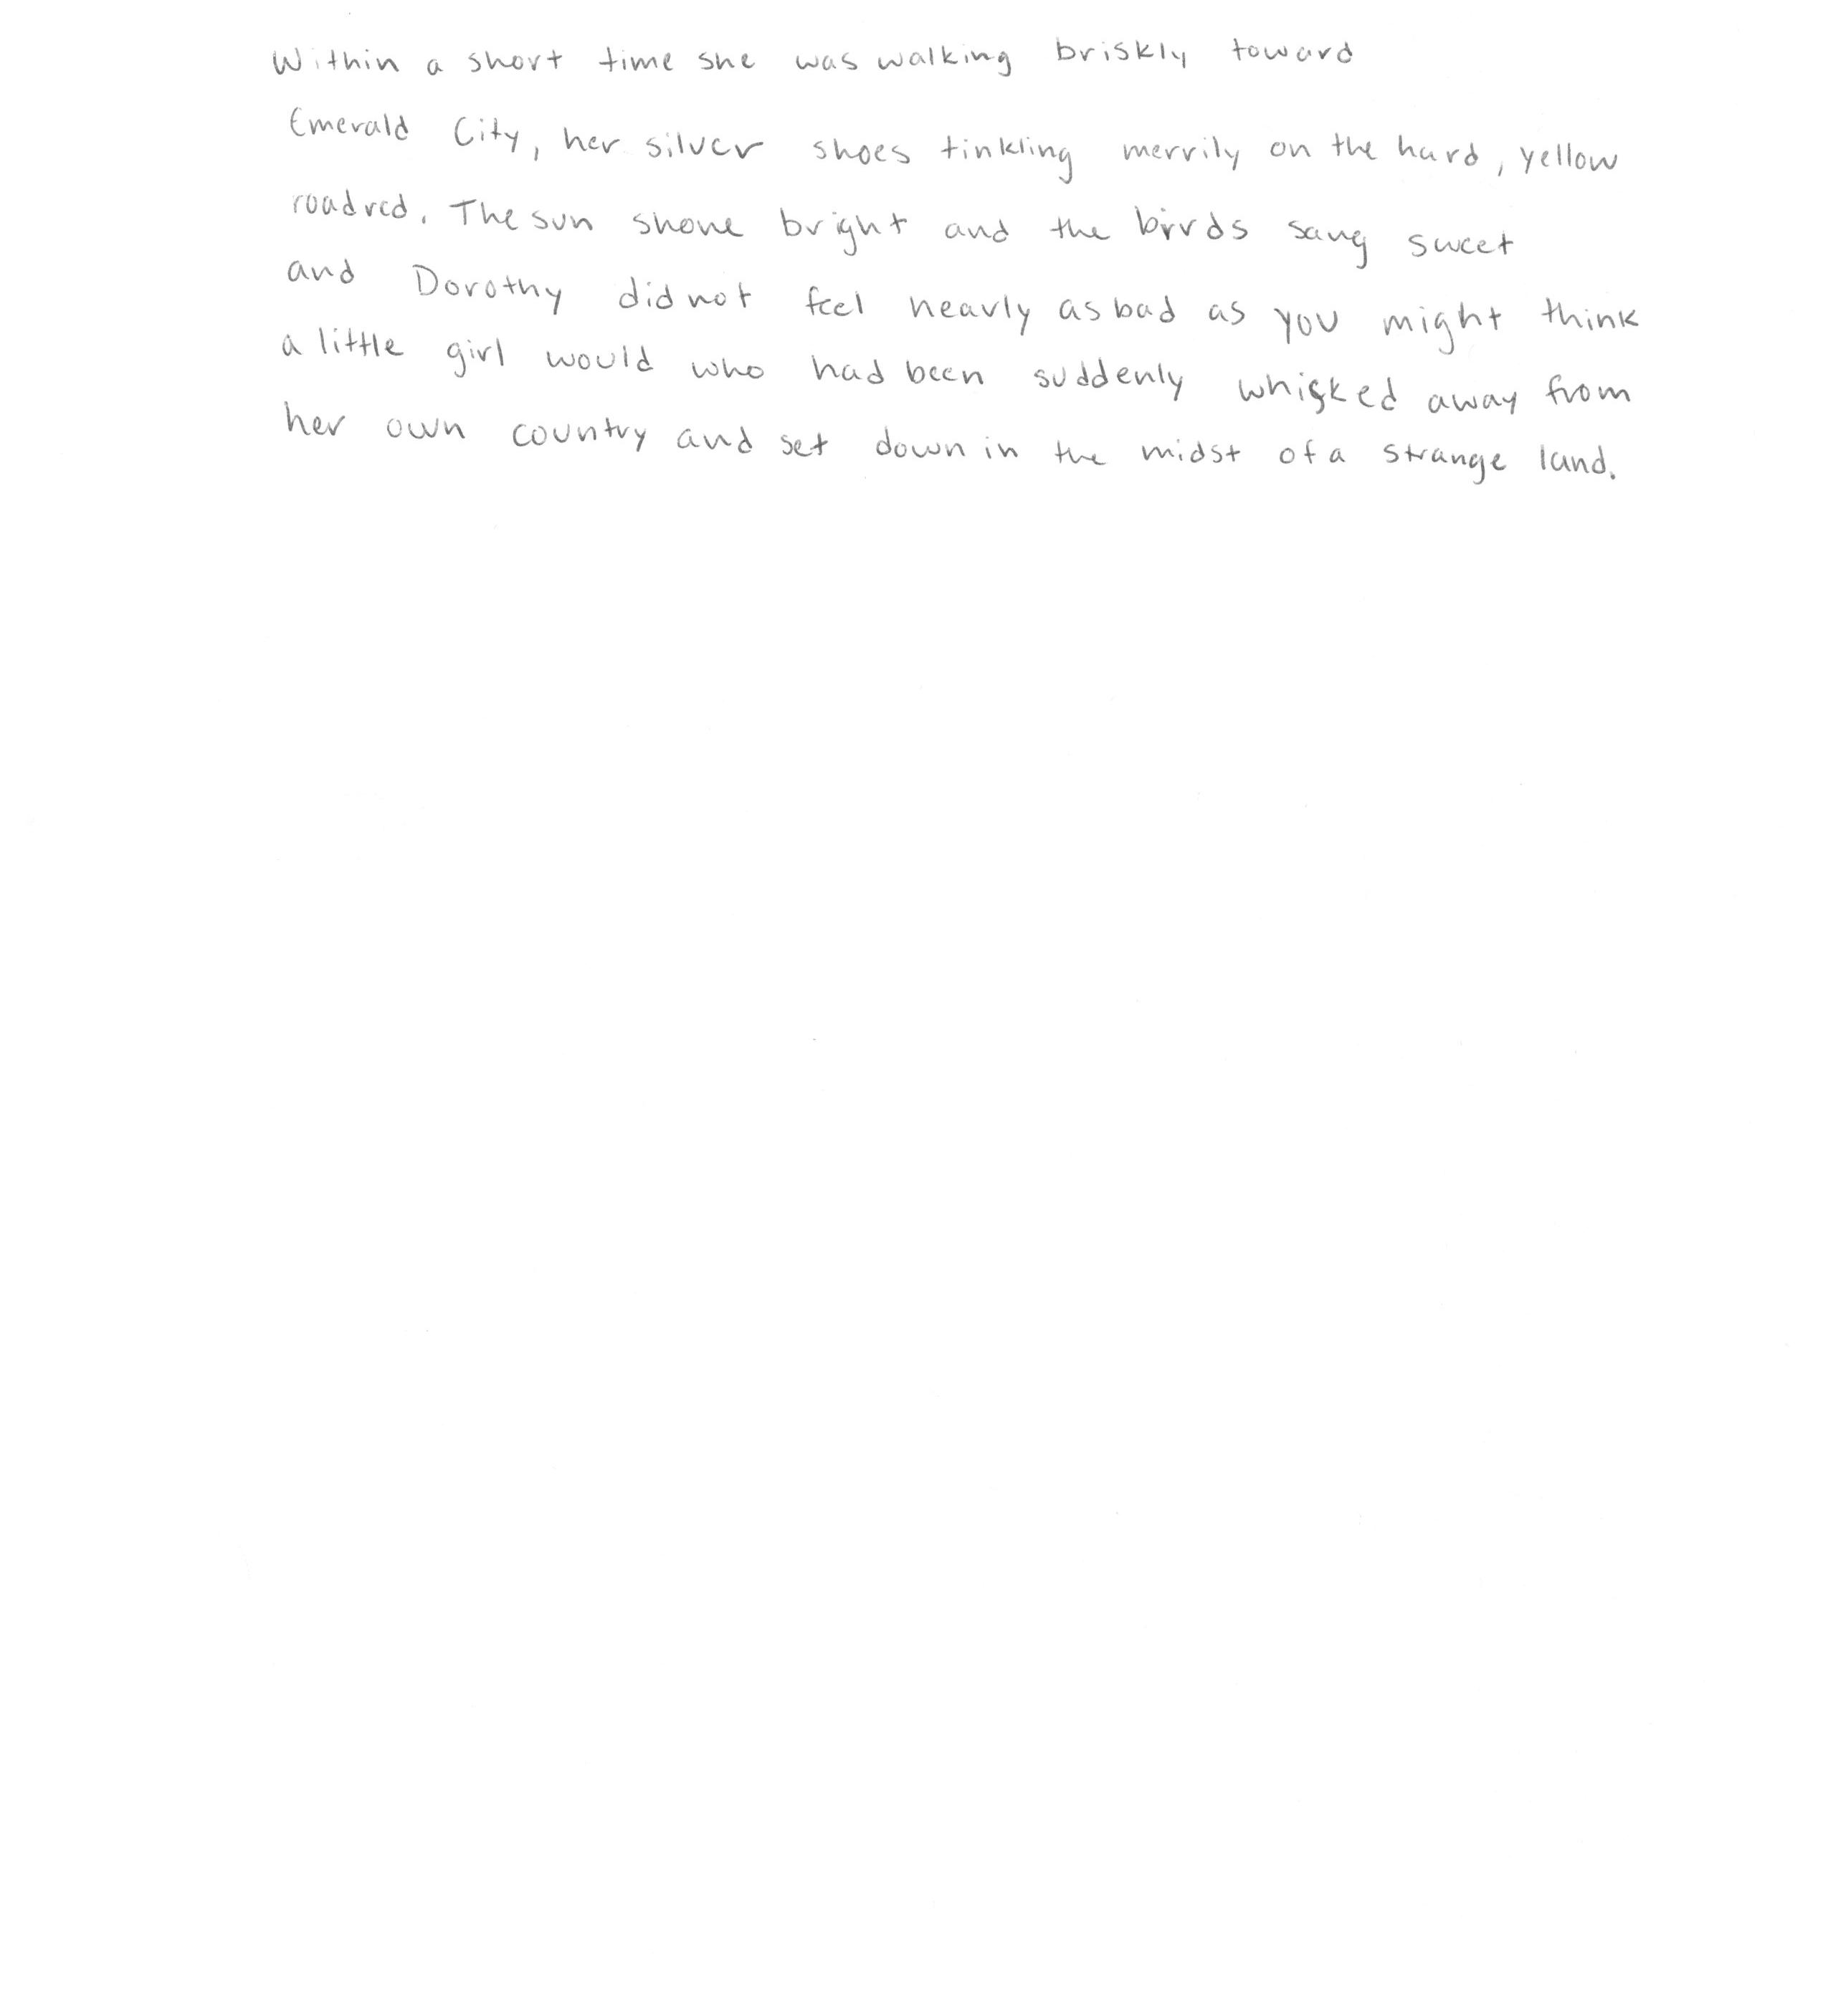 Within a short time she was walking briskly toward
Emerald City, her silver shoes tinkling merrily on the hard, yellow
roadred. The sun shone bright and the birds sang sweet
and Dorothy did not feel nearly as bad as you might think
a little girl would who had been suddenly whisked away from
her own country and set down in the midst of a strange land.